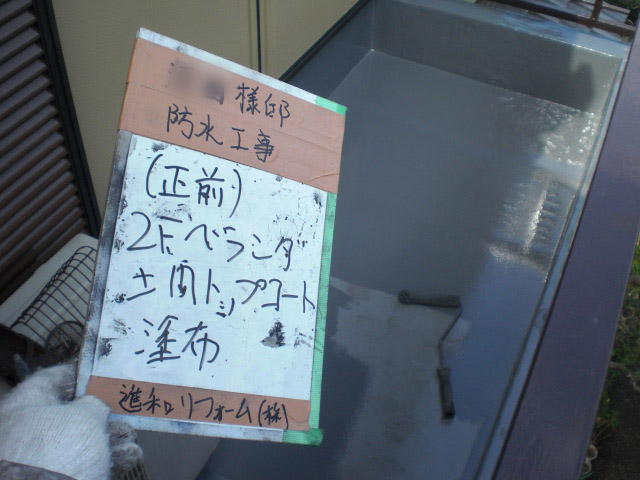 様邸
防水工事
(正前)
2Fベランダ
土間トップコート
塗布
進和リフォーム(株)